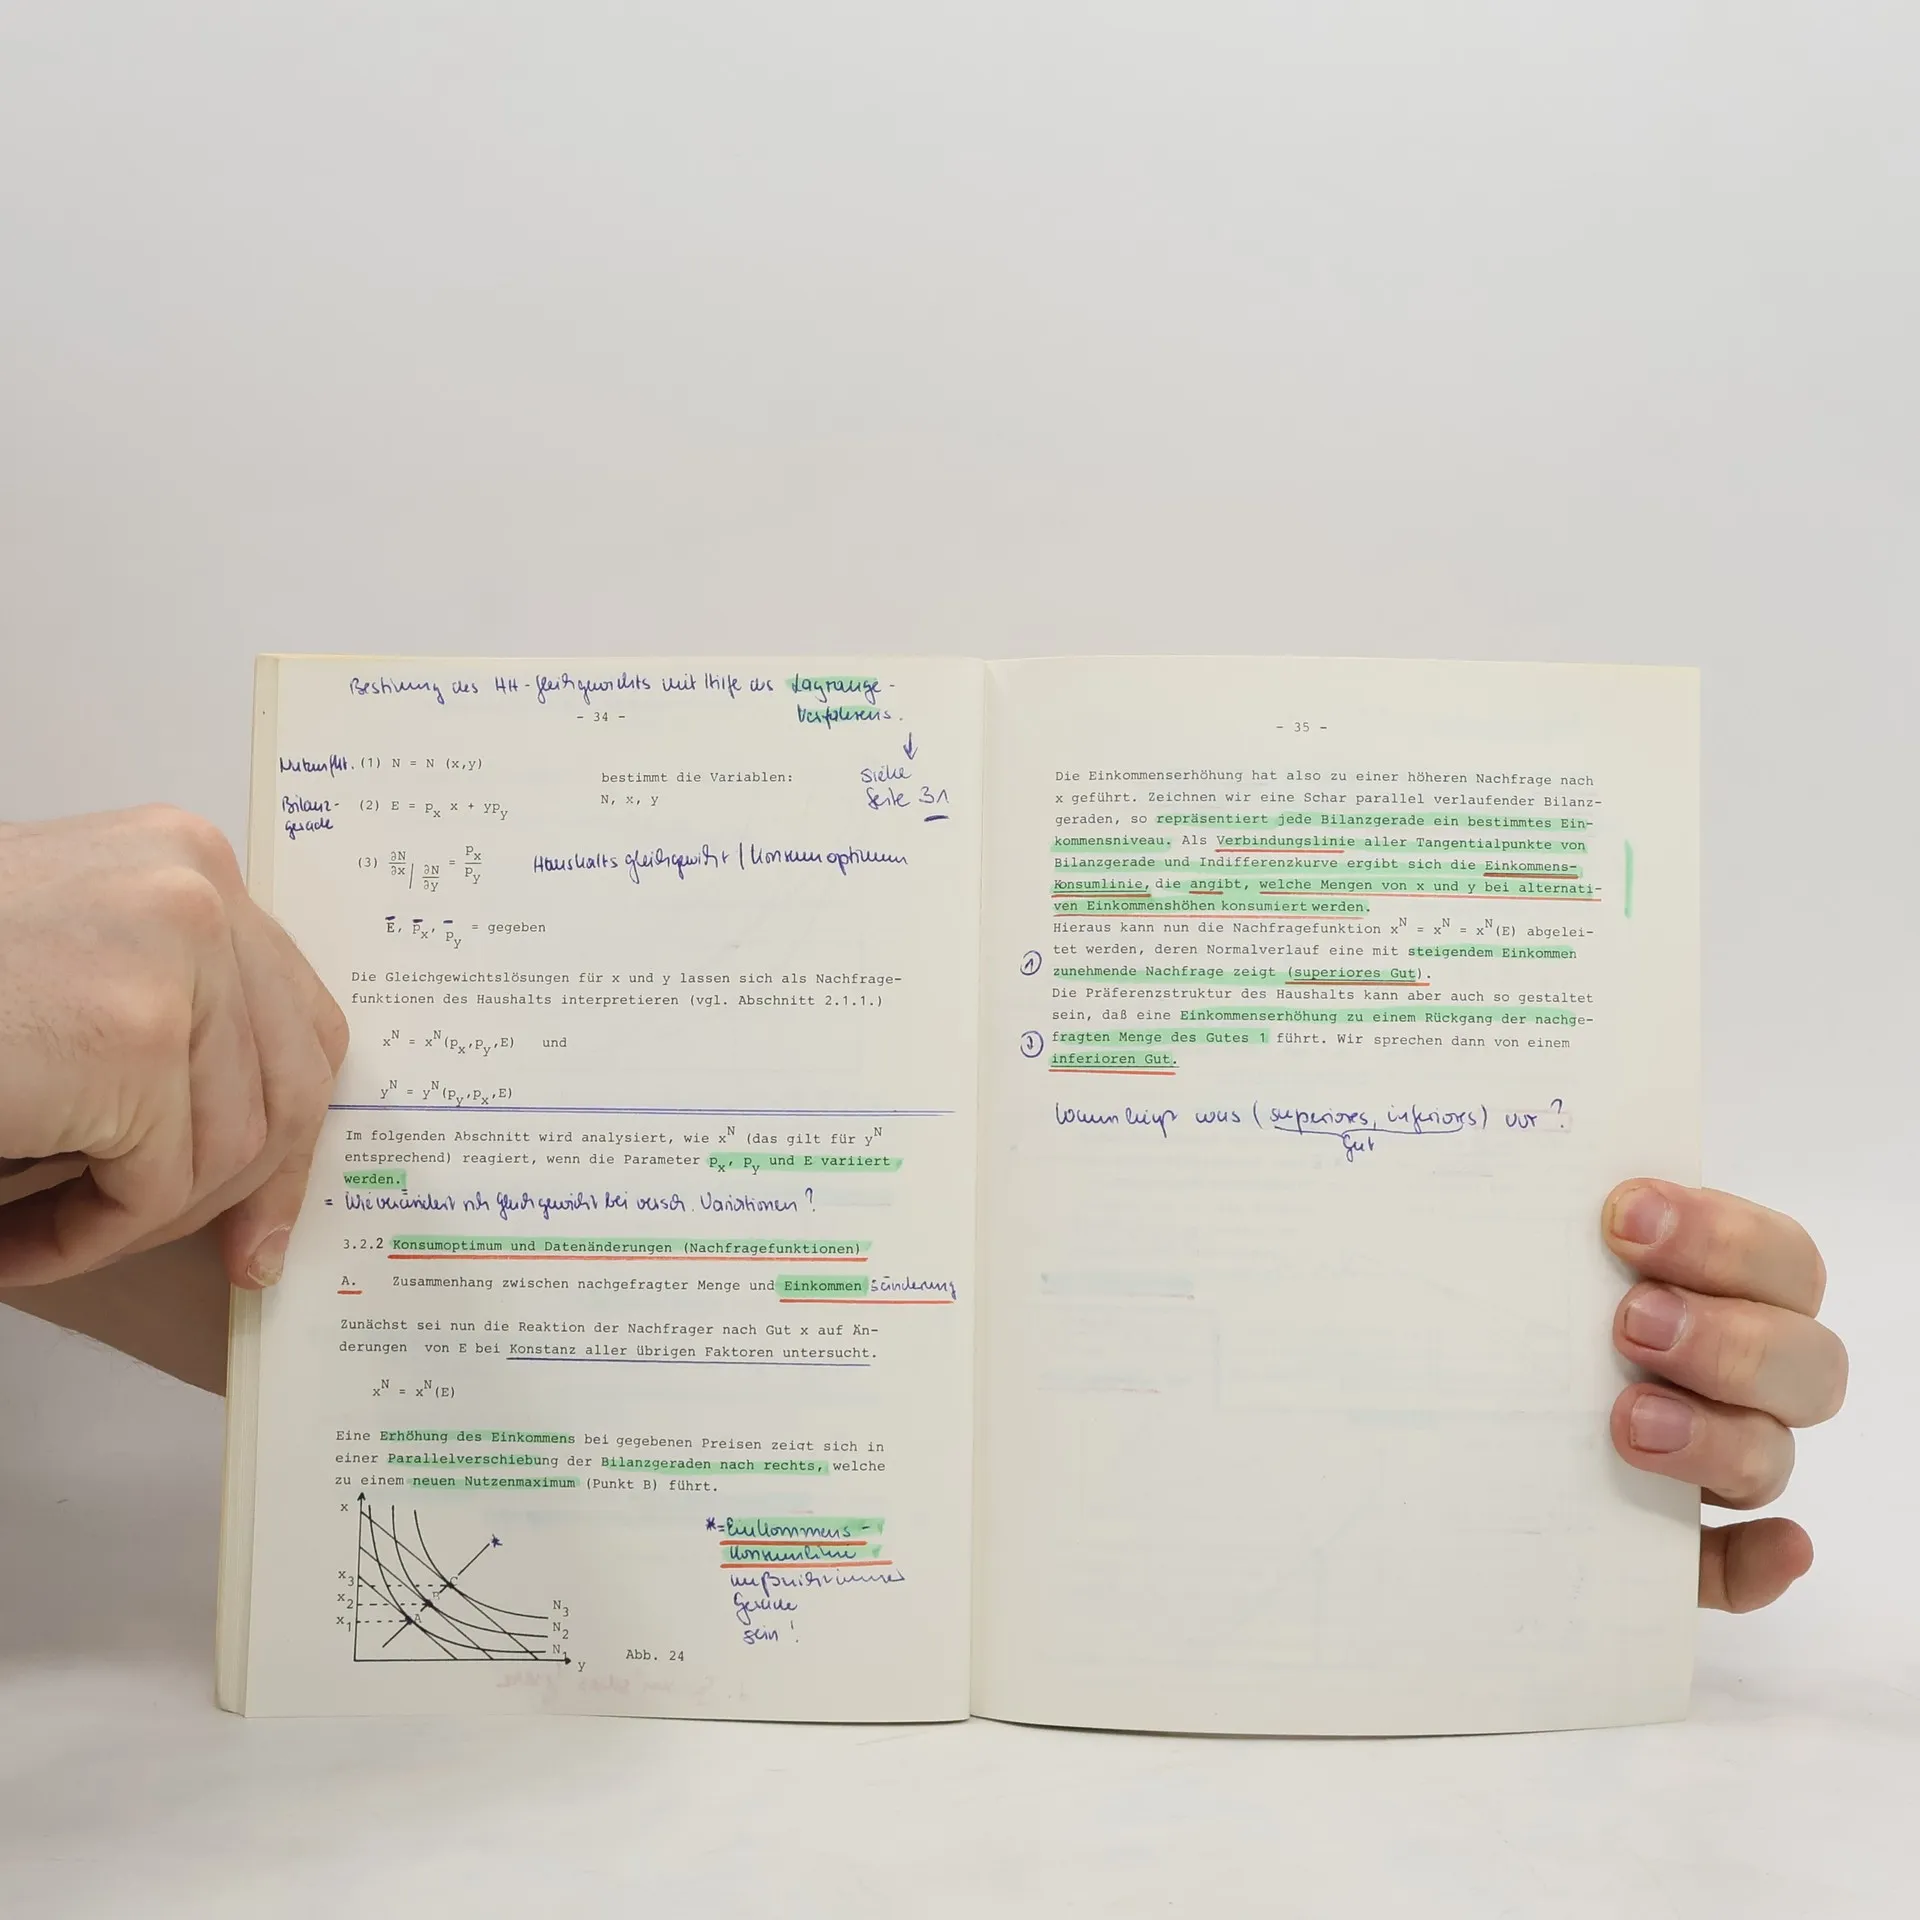 Bestimmg des HH-Gleichgewichts mit Hilfe des Lagrange-
Verfahrens.
- 34 -
siehe
Seite 31
Nutzenfkt. (1) N = N (x,y)
bestimmt die Variablen:
N, x, y
Bilanz-
gerade
(2) E = p_x x + yp_y
(3) ∂N/∂x / ∂N/∂y = p_x/p_y Haushaltsgleichgewicht / Konsumoptimum
Ē, p̄_x, p̄_y = gegeben
Die Gleichgewichtslösungen für x und y lassen sich als Nachfrage-
funktionen des Haushalts interpretieren (vgl. Abschnitt 2.1.1.)
x^N = x^N(p_x,p_y,E) und
y^N = y^N(p_y,p_x,E)
Im folgenden Abschnitt wird analysiert, wie x^N (das gilt für y^N
entsprechend) reagiert, wenn die Parameter p_x, p_y und E variiert
werden.
= Wie verändert sich Gleichgewicht bei versch. Variationen?
3.2.2 Konsumoptimum und Datenänderungen (Nachfragefunktionen)
A. Zusammenhang zwischen nachgefragter Menge und Einkommensänderung
Zunächst sei nun die Reaktion der Nachfrager nach Gut x auf Än-
derungen von E bei Konstanz aller übrigen Faktoren untersucht.
x^N = x^N(E)
Eine Erhöhung des Einkommens bei gegebenen Preisen zeigt sich in
einer Parallelverschiebung der Bilanzgeraden nach rechts, welche
zu einem neuen Nutzenmaximum (Punkt B) führt.
x
*
x_3
x_2
x_1
C
B
A
N_3
N_2
N_1
y
Abb. 24
*=Einkommens-
Konsumlinie
muß nicht immer
Gerade
sein!
- 35 -
Die Einkommenserhöhung hat also zu einer höheren Nachfrage nach
x geführt. Zeichnen wir eine Schar parallel verlaufender Bilanz-
geraden, so repräsentiert jede Bilanzgerade ein bestimmtes Ein-
kommensniveau. Als Verbindungslinie aller Tangentialpunkte von
Bilanzgerade und Indifferenzkurve ergibt sich die Einkommens-
Konsumlinie, die angibt, welche Mengen von x und y bei alternati-
ven Einkommenshöhen konsumiert werden.
Hieraus kann nun die Nachfragefunktion x^N = x^N = x^N(E) abgelei-
tet werden, deren Normalverlauf eine mit steigendem Einkommen
① zunehmende Nachfrage zeigt (superiores Gut).
Die Präferenzstruktur des Haushalts kann aber auch so gestaltet
sein, daß eine Einkommenserhöhung zu einem Rückgang der nachge-
fragten Menge des Gutes 1 führt. Wir sprechen dann von einem
inferioren Gut.
Wann liegt was (superiores, inferiores) vor?
Gut